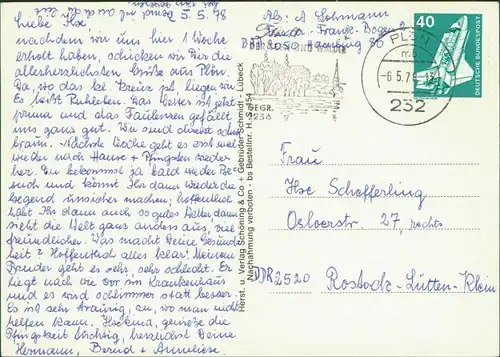 5. 5. 78
liebe Ilse!
nachdem wir uns hier 1 Woche
erholt haben, schicken wir Dir die
allerherzlichsten Grüße aus Plön.
Da, wo das bl. Kreuz ist, liegen wir.
Es heißt Ruhleben. Das Wetter ist jetzt
prima und das Faulensen gefällt
uns ganz gut. Wir sind schon
braun. Nächste Woche geht es erst mal
wieder nach Hause + Pfingsten wieder
her. Du bekommst ja bald wieder Be-
such und könnt Ihr dann wieder die
Gegend unsicher machen; hoffentlich
habt Ihr dann auch so gutes Wetter, dann
sieht die Welt ganz anders aus, viel
freundlicher. Was macht Deine Gesund-
heit? Hoffentlich alles klar! Meinem
Bruder geht es sehr, sehr schlecht. Er
liegt nach wie vor im Krankenhaus
und es wird schlimmer statt besser.
Es ist sehr traurig, so, wo man nicht
helfen kann. Ilsekind, genieße die
Pfingstzeit tüchtig, herzlichst Deine
Hermann, Bernd + Anneliese.
Herst. u. Verlag Schöning & Co · Gebrüder Schmidt · Lübeck
Nachahmung verboten
Abs: A. Lohmann
2050 Hamburg 80
PLÖN
-6.5.78
232
GEGR.
1236
40
DEUTSCHE BUNDESPOST
Frau
Ilse Schefferling
Osloerstr. 27, rechts
DDR 2520 Rostock-Lütten-Klein